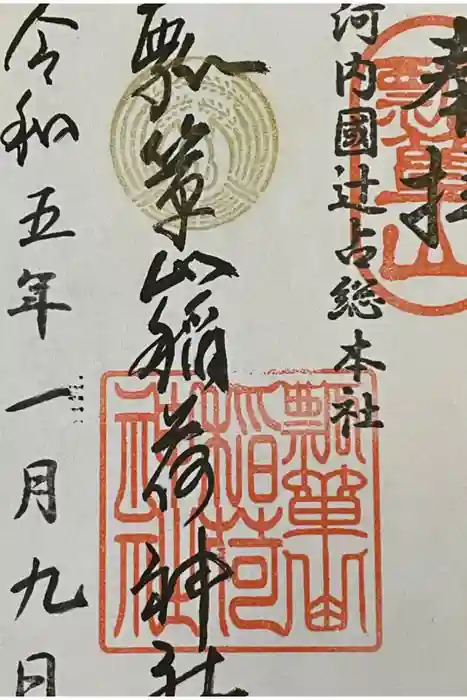 奉拝
河内國辻占総本社
瓢箪山
瓢箪山稲荷神社
瓢箪山稲荷神社
令和五年一月九日